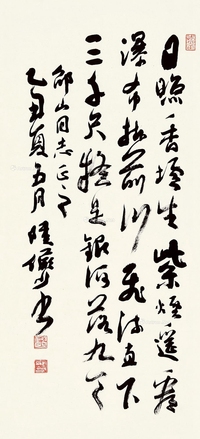 日照香炉生紫煙遥看
瀑布挂前川飛流直下
三千尺疑是銀河落九天
邵山同志正之
乙丑夏五月陆俨少书